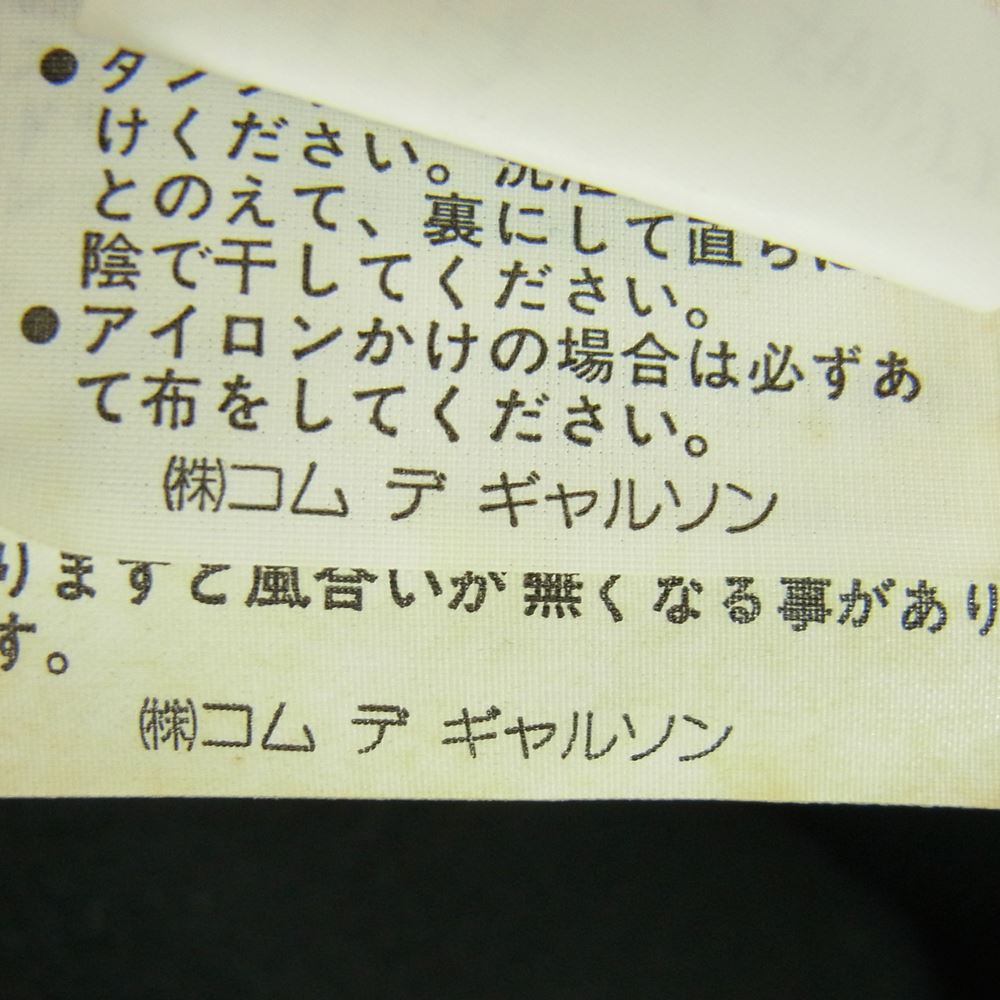 ●タ
けください。洗濯
とのえて、裏にして直ちに
陰で干してください。
●アイロンかけの場合は必ずあ
て布をしてください。
㈱コム デ ギャルソン
りますと風合いが無くなる事があり
す。
㈱コム デ ギャルソン